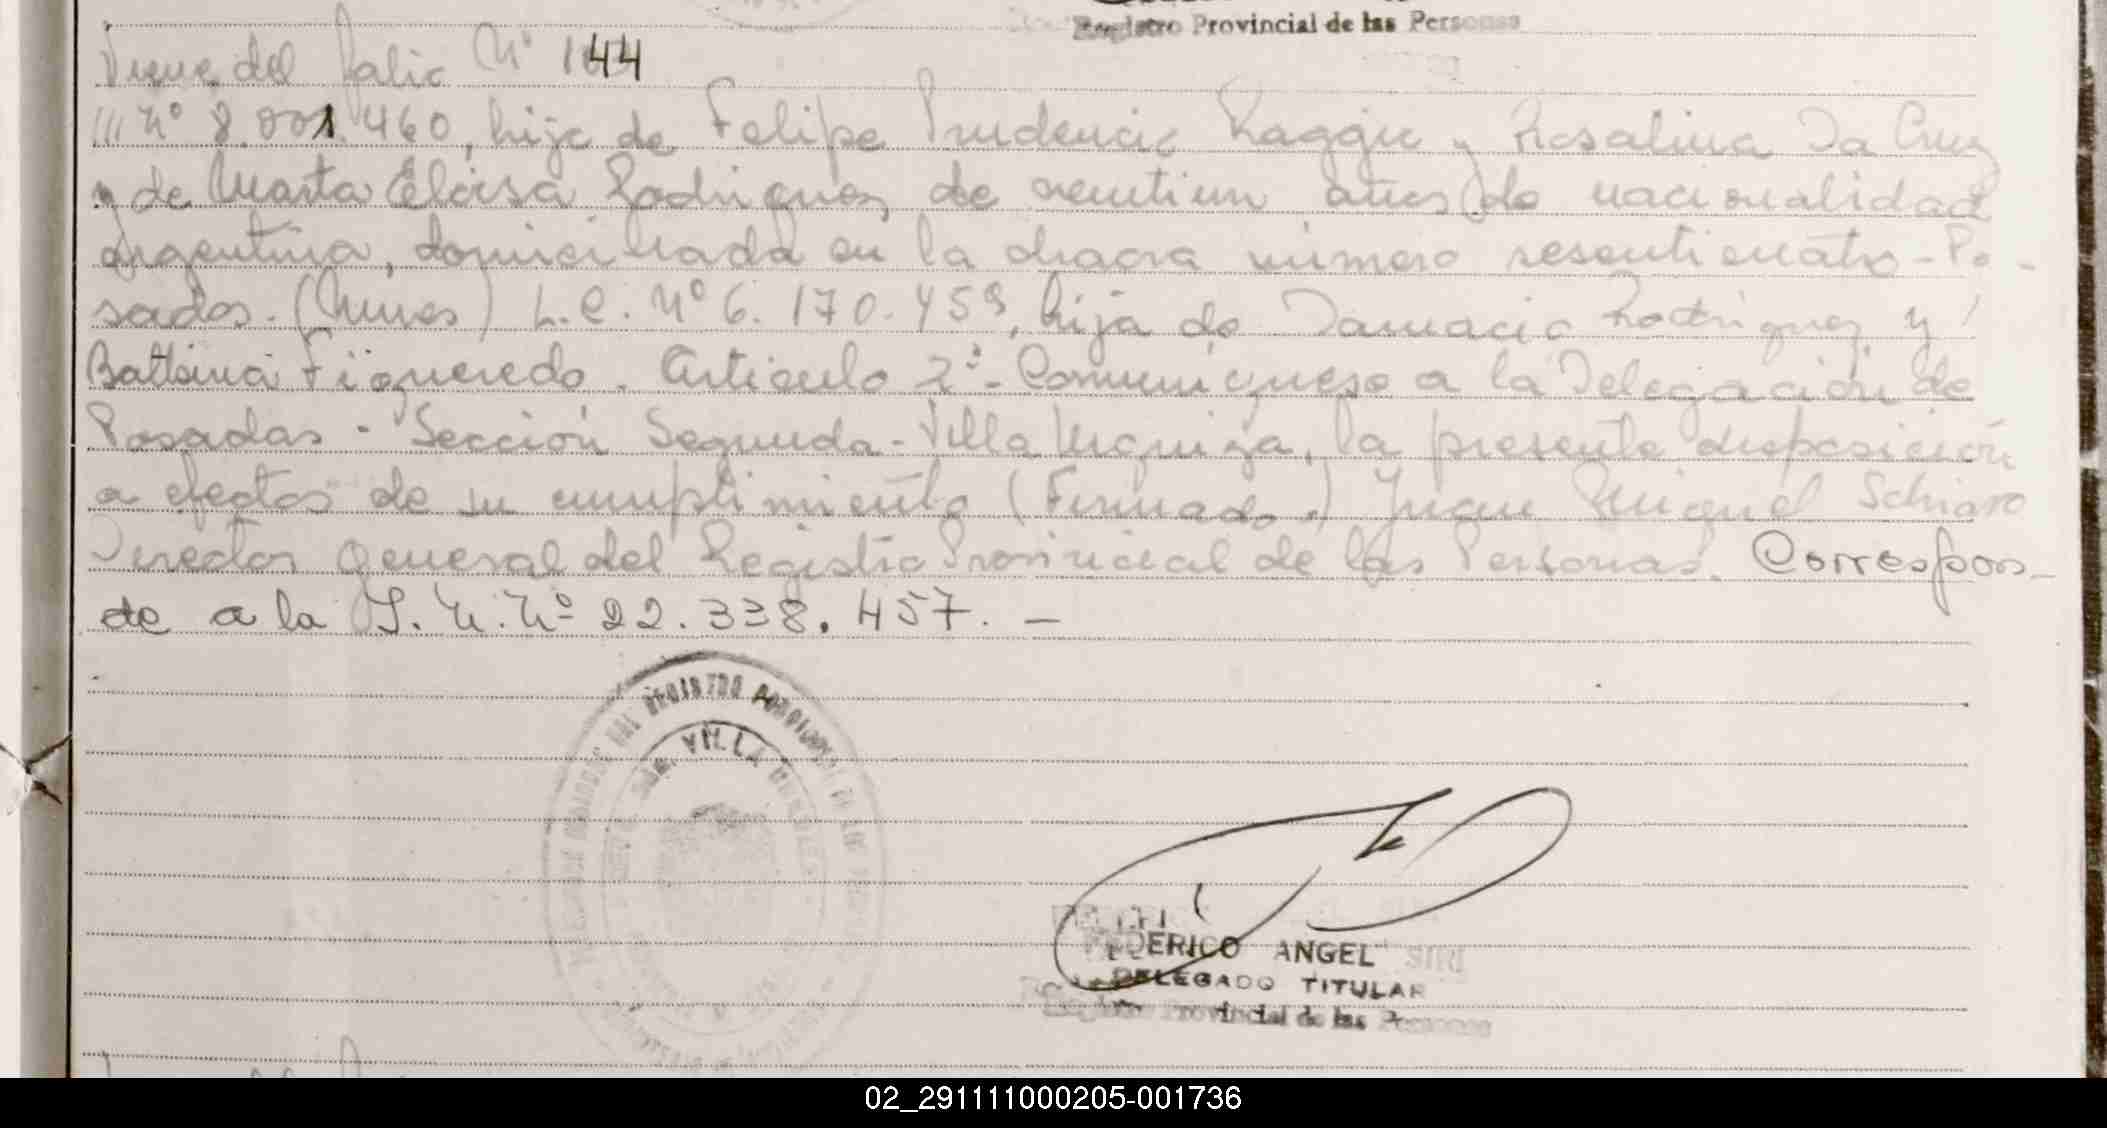 Registro Provincial de las Personas
Viene del folio Nº 144
/// Nº 8.001.460, hijo de Felipe Prudencio Raggio y Rosalina Da Cruz
y de Marta Eloisa Rodriguez de veintiun años de nacionalidad
argentina, domiciliada en la chacra número sesenticuatro - Po-
sadas. (Mnes) L.C. Nº 6.170.459, hija de Damacio Rodriguez y
Figueredo. Artículo 2º- Comuníquese a la Delegación de
Posadas - Sección Segunda - Villa Urquiza, la presente disposición
a efectos de su cumplimiento (Firmado.) Miguel Schiavo
Director General del Registro Provincial de las Personas. Correspon-
de a la I.N.Nº 22.338.457. -
REGISTRO PROVINCIAL
VILLA URQUIZA
FEDERICO ANGEL SIRI
DELEGADO TITULAR
Registro Provincial de las Personas
02_291111000205-001736